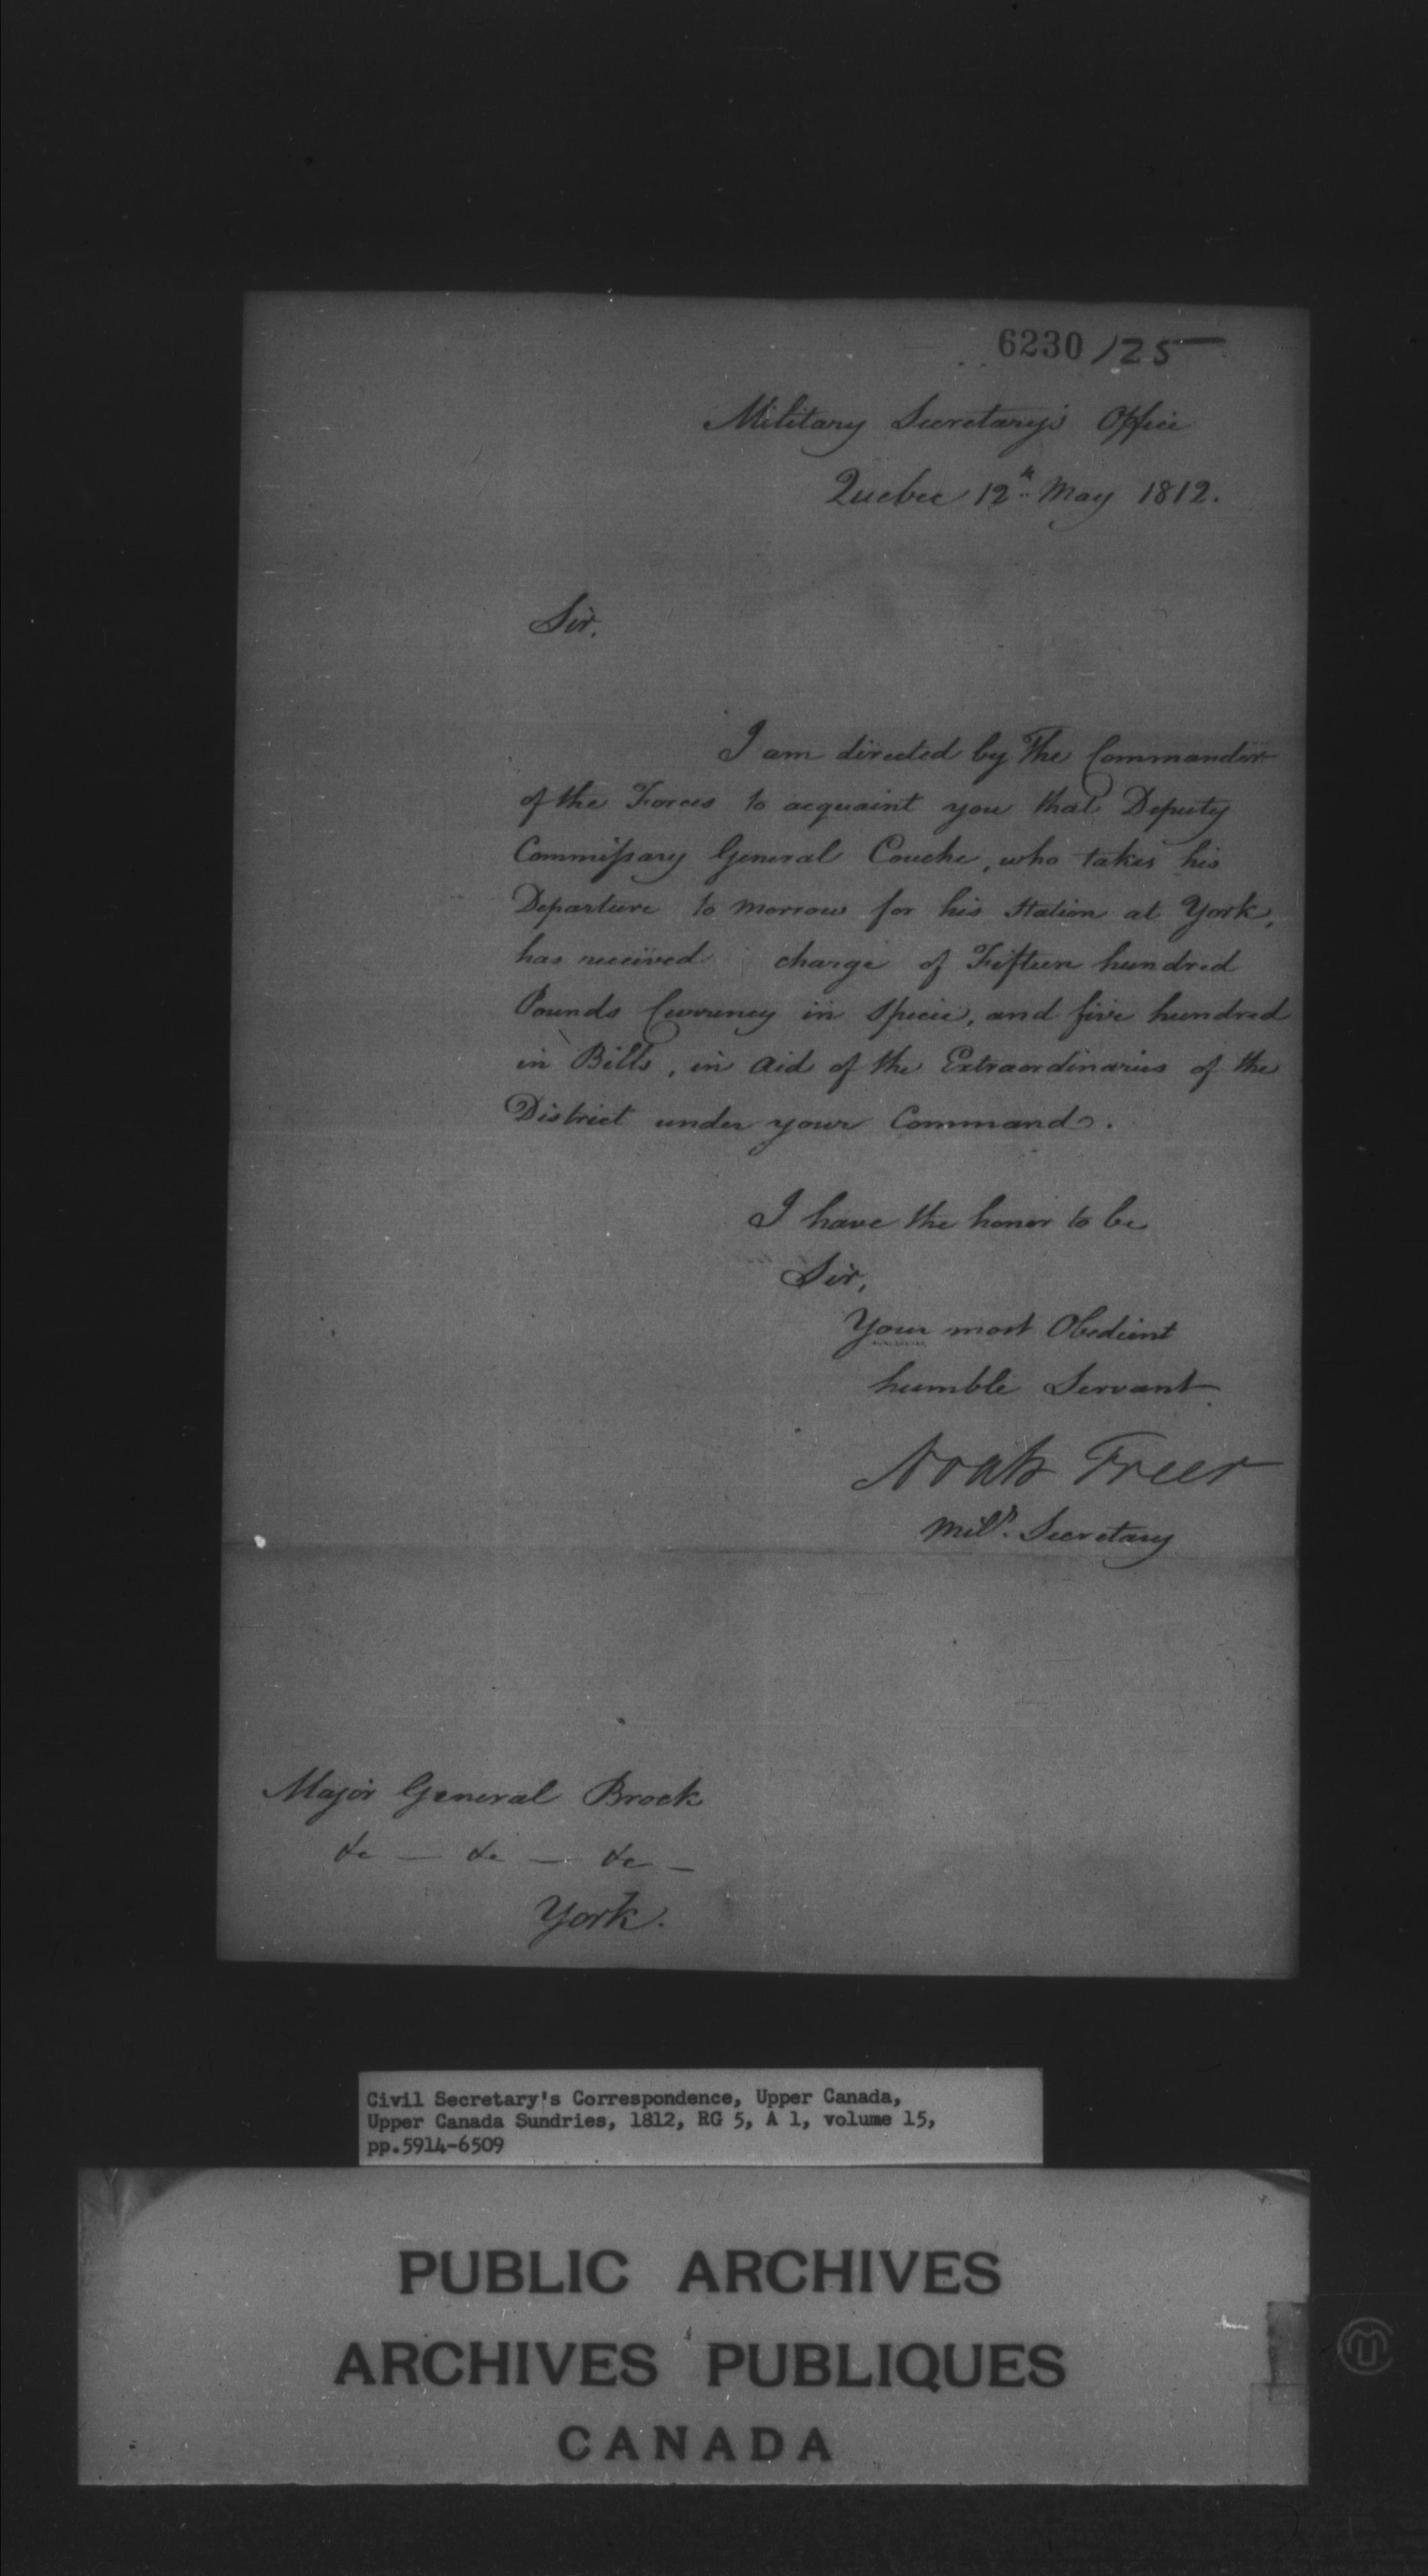 6230 125
Military Secretary's Office
Quebec 12th May 1812.
Sir,
I am directed by The Commander
of the Forces to acquaint you that Deputy
Commissary General Couche, who takes his
Departure to morrow for his Station at York,
has received charge of Fifteen hundred
Pounds Currency in Specie, and five hundred
in Bills, in aid of the Extraordinaries of the
District under your Command.
I have the honor to be
Sir,
Your most Obedient
humble Servant
Noah Freer
Mily. Secretary
Major General Brock
&c — &c — &c —
York.
Civil Secretary's Correspondence, Upper Canada,
Upper Canada Sundries, 1812, RG 5, A 1, volume 15,
pp.5914-6509
PUBLIC ARCHIVES
ARCHIVES PUBLIQUES
CANADA